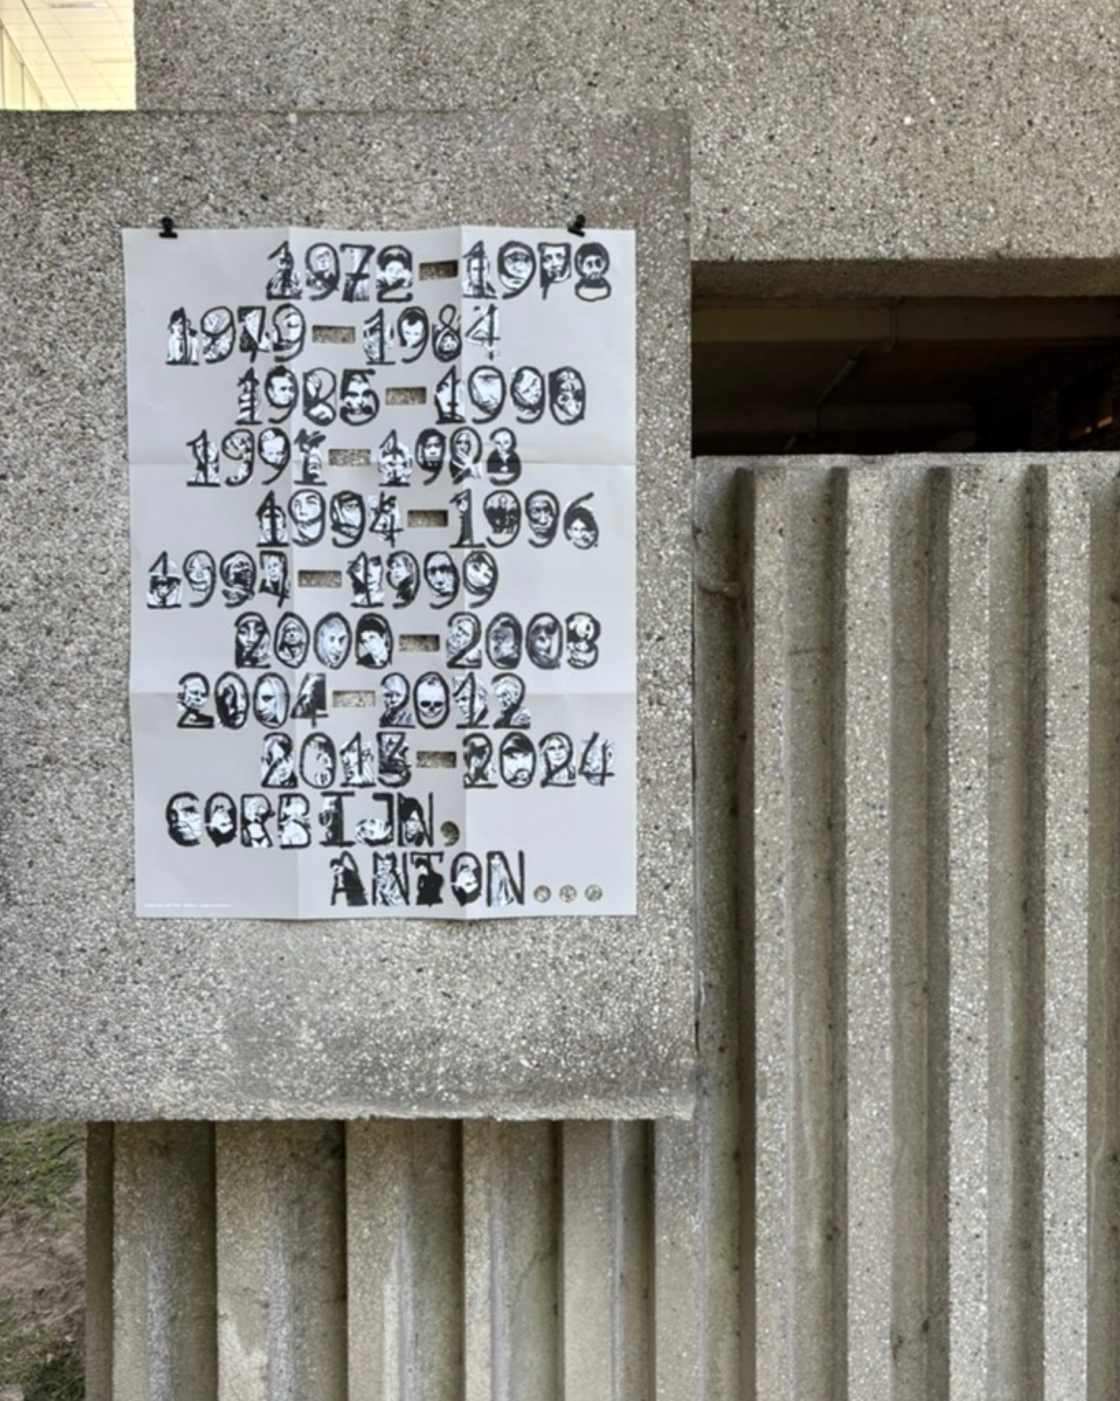 1972-1978
1979-1984
1985-1990
1991-1993
1994-1996
1997-1999
2000-2003
2004-2012
2013-2024
CORBIJN,
ANTON...